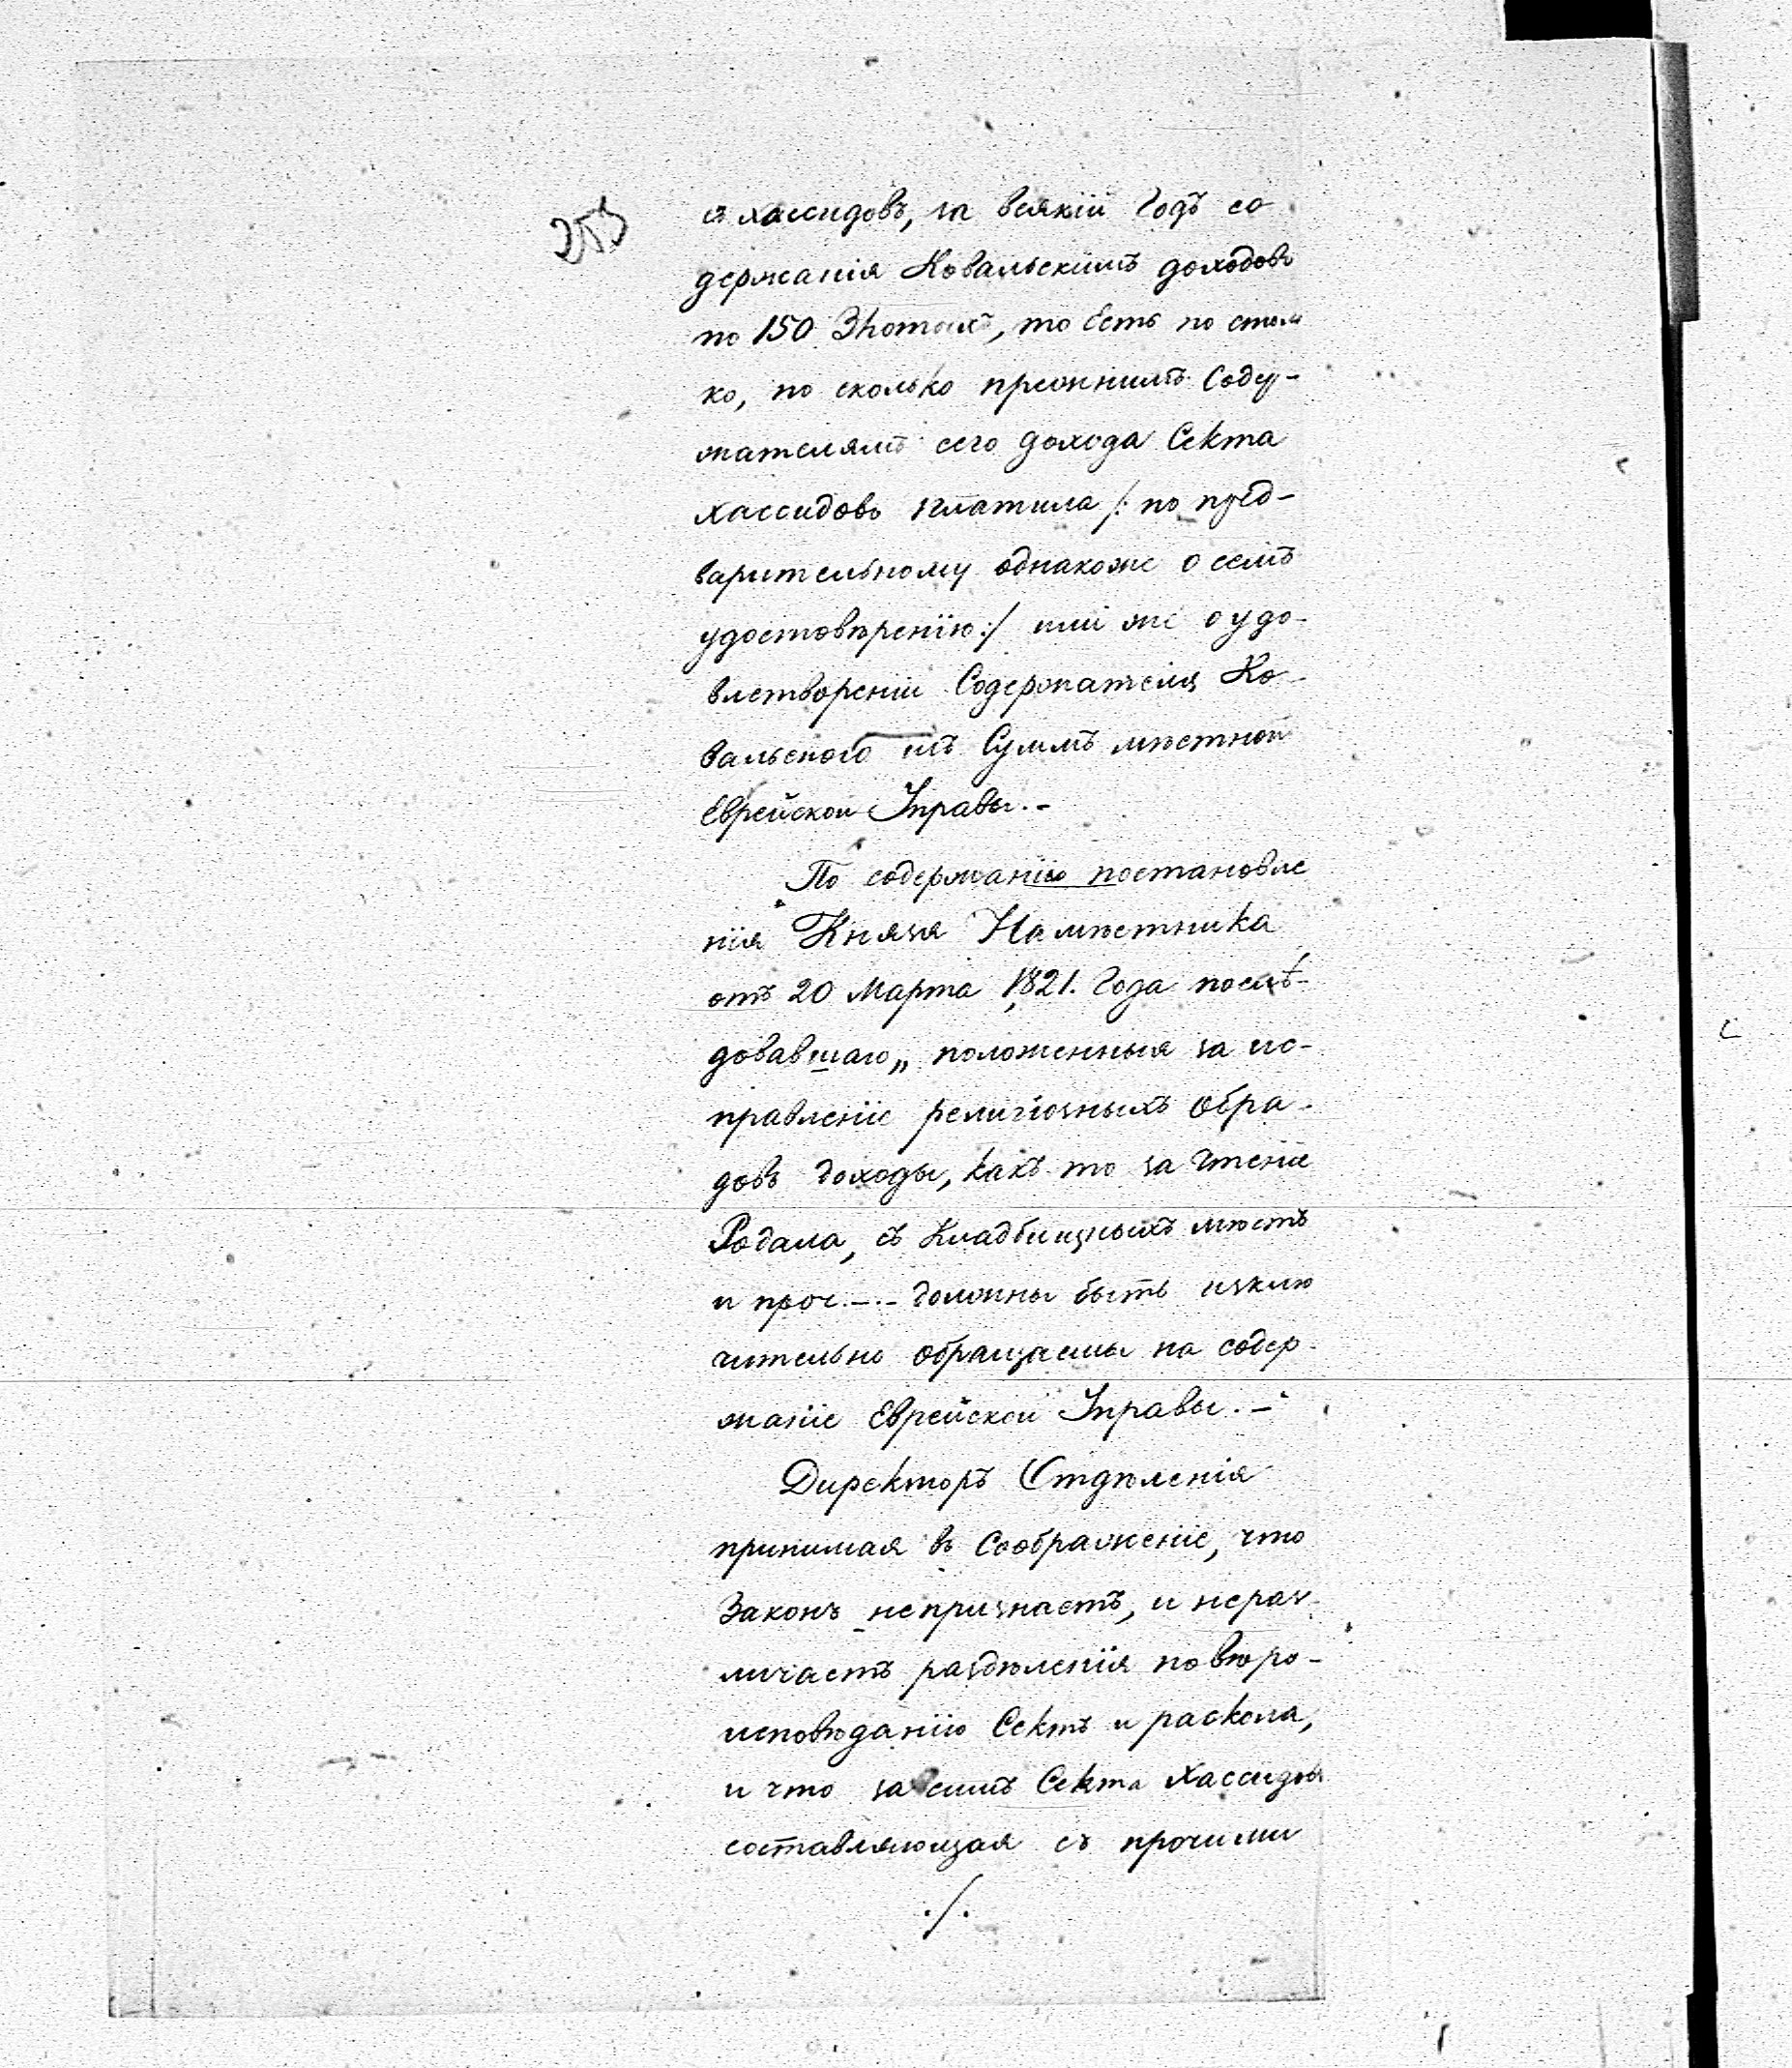 253
съ хассидовъ, за всякій годъ со
держанія Ковальскимъ доходовъ
по 150 Злотыхъ, то есть по столь
ко, по сколько прежнимъ Содер-
жателямъ сего дохода Секта
хассидовъ платила /: по пред-
варительному однакоже о семъ
удостовѣренію :/ или же о удо-
влетвореніи Содержателя Ко-
вальского изъ Суммъ мѣстной
Еврейской Управы. -
По содержанію постановле
нія Князя Намѣстника
отъ 20 Марта 1821. года послѣ-
довавшаго „ положенныя за ис-
правленіе религіозныхъ обря-
довъ доходы, какъ то за чтеніе
Родала, съ Кладбищныхъ мѣстъ
и проч. - . - должны быть изклю
чительно обращаемы на содер-
жаніе Еврейской Управы. -
Директоръ Отдѣленія
принимая въ Соображеніе, что
Законъ непризнаетъ, и нераз-
личаетъ раздѣленія по вѣро-
исповѣданію Сектъ и раскола,
и что за симъ Секта Хассидовъ
составляющая съ прочими
./.